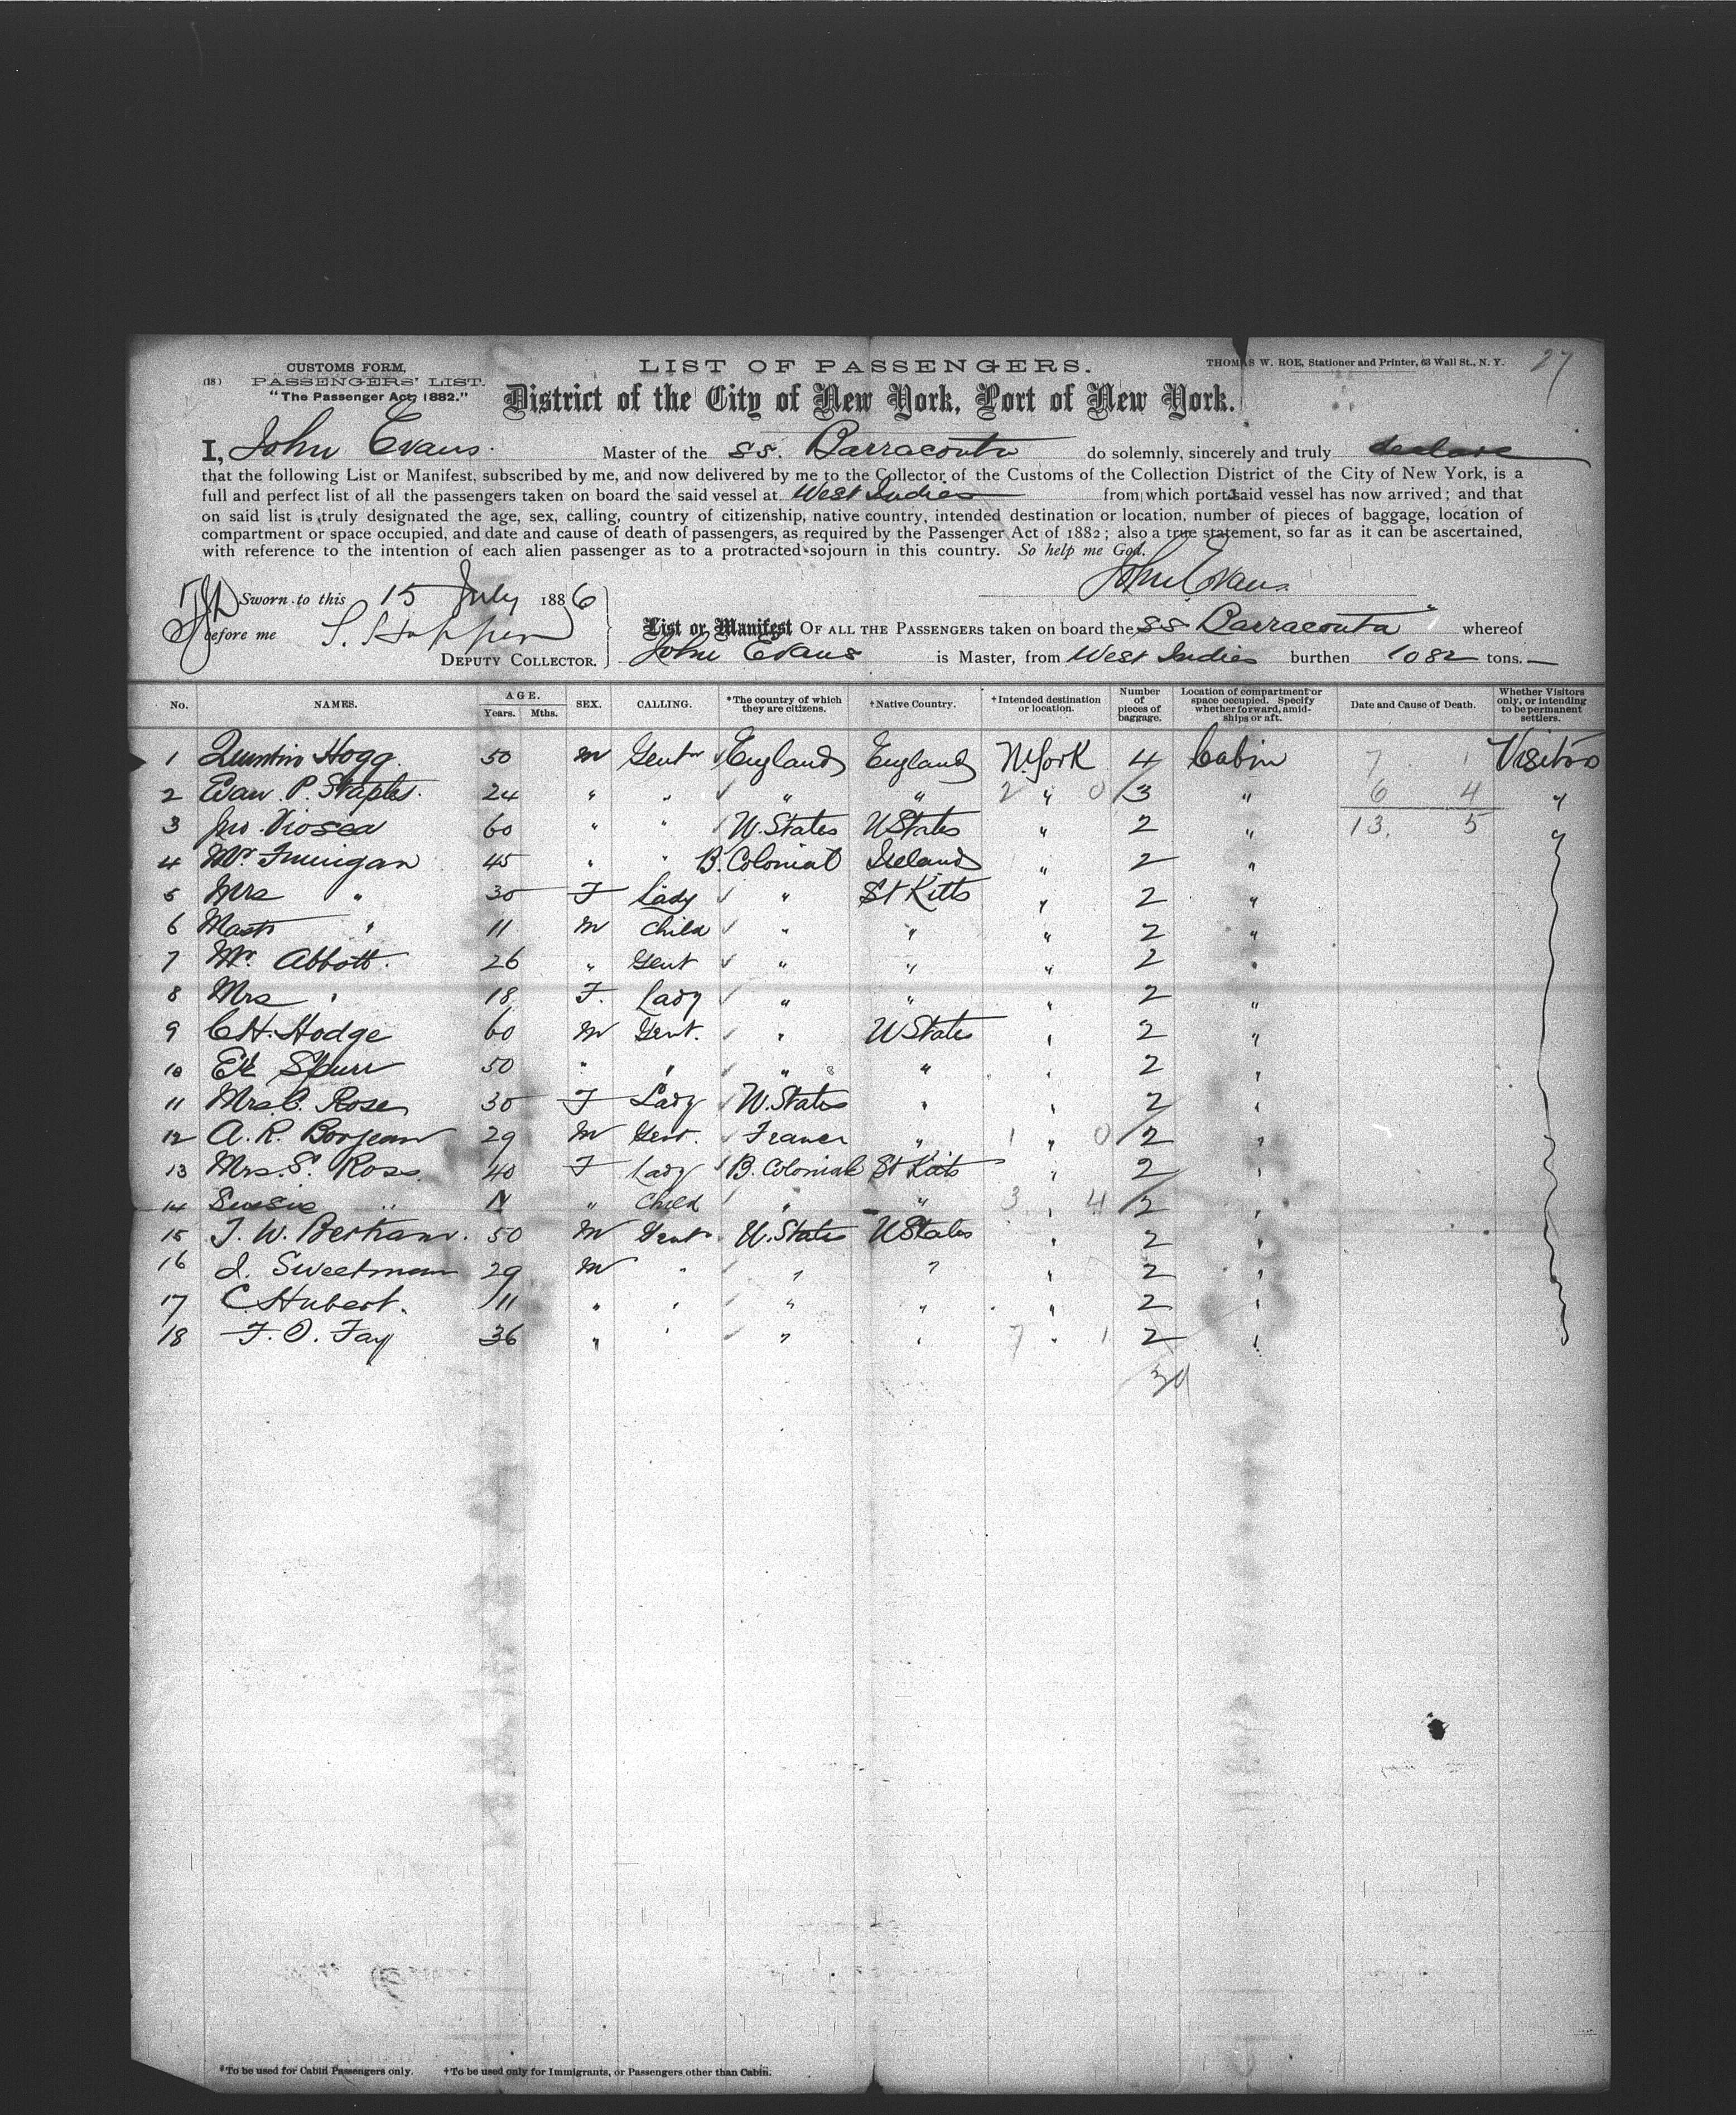 CUSTOMS FORM,
(18) PASSENGERS' LIST.
"The Passenger Act, 1882."
LIST OF PASSENGERS.
THOMAS W. ROE, Stationer and Printer, 63 Wall St., N. Y.
27
District of the City of New York, Port of New York.
I, John Evans Master of the SS. Barracouta do solemnly, sincerely and truly declare
that the following List or Manifest, subscribed by me, and now delivered by me to the Collector of the Customs of the Collection District of the City of New York, is a
full and perfect list of all the passengers taken on board the said vessel at West Indies from which port said vessel has now arrived; and that
on said list is truly designated the age, sex, calling, country of citizenship, native country, intended destination or location, number of pieces of baggage, location of
compartment or space occupied, and date and cause of death of passengers, as required by the Passenger Act of 1882; also a true statement, so far as it can be ascertained,
with reference to the intention of each alien passenger as to a protracted sojourn in this country. So help me God.
John Evans
Sworn to this 15 July 1886
before me
DEPUTY COLLECTOR.
List or Manifest OF ALL THE PASSENGERS taken on board the SS Barracouta whereof
John Evans is Master, from West Indies burthen 1082 tons.
No. NAMES. AGE. Years. Mths. SEX. CALLING. *The country of which they are citizens. †Native Country. †Intended destination or location. Number of pieces of baggage. Location of compartment or space occupied. Specify whether forward, amidships or aft. Date and Cause of Death. Whether Visitors only, or intending to be permanent settlers.
1 Quintin Hogg 50 M Gentn England England N. York 4 Cabin 7 1 Visitors
2 P. Staples 24 " " " " 2 " 0 3 " 6 4 "
3 Jno 60 " " U. States U States " 2 " 13. 5 "
4 Mr Finnigan 45 " " B. Colonial Ireland " 2 "
5 Mrs " 30 F Lady " St Kitts " 2 "
6 Mastr " 11 M Child " " " 2 "
7 Mr. Abbott. 26 " Gent " " " 2 "
8 Mrs " 18 F. Lady " " " 2 "
9 C H. Hodge 60 M Gent. " U States " 2 "
10 Spurr 50 " " " " " 2 "
11 Mrs C. Rose 30 F Lady U. States " " 2 "
12 A. R. Bonjean 29 M Gent. France " 1 " 0 2 "
13 Mrs. S. Ross 40 F Lady B. Colonial St Kitts " 2 "
14 Susie " " Child " " 3 " 4 2 "
15 T. W. Bertram. 50 M Gent U. States U States " 2 "
16 J. Sweetman 29 M " " " " 2 "
17 C. Hubert. 11 " " " " " 2 "
18 F. O. Fay 36 " " " " 7 " 1 2 "
*To be used for Cabin Passengers only. †To be used only for Immigrants, or Passengers other than Cabin.